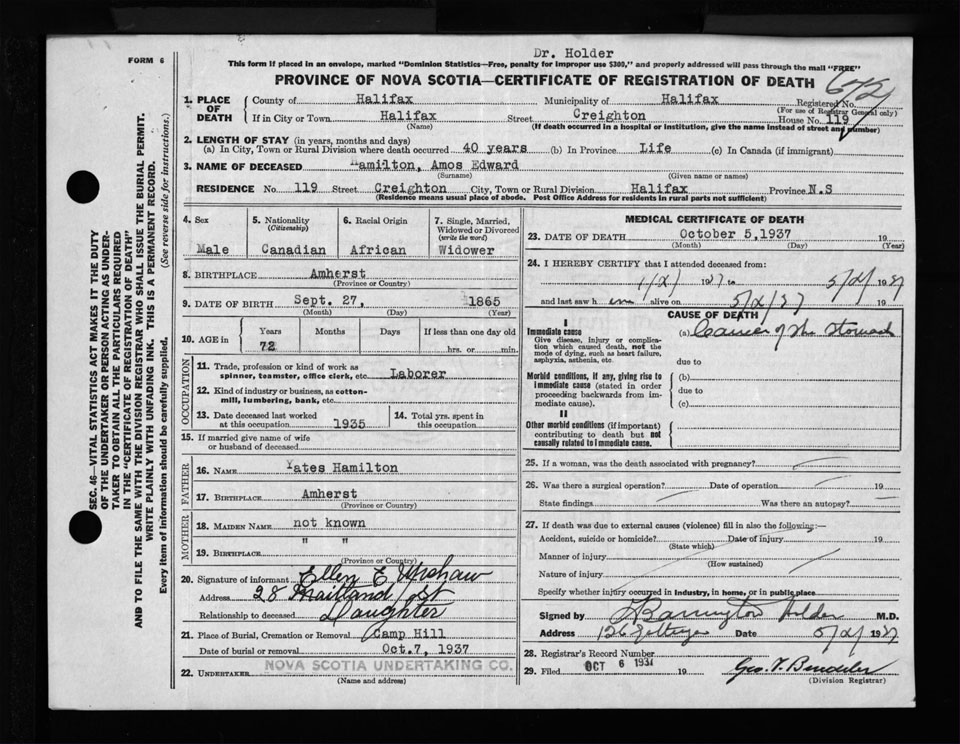 FORM 6
Dr. Holder
This form if placed in an envelope, marked "Dominion Statistics—Free, penalty for improper use $300," and properly addressed will pass through the mail "FREE"
PROVINCE OF NOVA SCOTIA—CERTIFICATE OF REGISTRATION OF DEATH
672
1. PLACE OF DEATH
County of Halifax Municipality of Halifax Registered No.
(For use of Registrar General only)
If in City or Town Halifax Street Creighton House No. 119
(Name) (If death occurred in a hospital or institution, give the name instead of street and number)
2. LENGTH OF STAY (in years, months and days)
(a) In City, Town or Rural Division where death occurred 40 years (b) In Province Life (c) In Canada (if immigrant)
3. NAME OF DECEASED Hamilton, Amos Edward
(Surname) (Given name or names)
RESIDENCE No. 119 Street Creighton City, Town or Rural Division Halifax Province N.S
(Residence means usual place of abode. Post Office Address for residents in rural parts not sufficient)
4. Sex
Male
5. Nationality
(Citizenship)
Canadian
6. Racial Origin
African
7. Single, Married, Widowed or Divorced
(write the word)
Widower
8. BIRTHPLACE Amherst
(Province or Country)
9. DATE OF BIRTH Sept. 27, 1865
(Month) (Day) (Year)
10. AGE in
Years Months Days If less than one day old
72 hrs. or min.
OCCUPATION
11. Trade, profession or kind of work as
spinner, teamster, office clerk, etc. Laborer
12. Kind of industry or business, as cotton-
mill, lumbering, bank, etc.
13. Date deceased last worked
at this occupation 1935
14. Total yrs. spent in
this occupation
15. If married give name of wife
or husband of deceased
FATHER
16. NAME Yates Hamilton
17. BIRTHPLACE Amherst
(Province or Country)
MOTHER
18. MAIDEN NAME not known
19. BIRTHPLACE " "
(Province or Country)
20. Signature of informant Ellen E Upshaw
Address 28 Maitland St
Relationship to deceased Daughter
21. Place of Burial, Cremation or Removal Camp Hill
Date of burial or removal Oct. 7, 1937
22. UNDERTAKER NOVA SCOTIA UNDERTAKING CO.
(Name and address)
MEDICAL CERTIFICATE OF DEATH
23. DATE OF DEATH October 5,1937 19
(Month) (Day) (Year)
24. I HEREBY CERTIFY that I attended deceased from:
19 to 19
and last saw h im alive on 19
CAUSE OF DEATH
I
Immediate cause (a) Cancer of the Stomach
Give disease, injury or complica-
tion which caused death, not the
mode of dying, such as heart failure,
asphyxia, asthenia, etc.
due to
Morbid conditions, if any, giving rise to
immediate cause (stated in order
proceeding backwards from im-
mediate cause).
(b)
due to
(c)
II
Other morbid conditions (if important)
contributing to death but not
causally related to immediate cause.
25. If a woman, was the death associated with pregnancy?
26. Was there a surgical operation? Date of operation 19
State findings Was there an autopsy?
27. If death was due to external causes (violence) fill in also the following:—
Accident, suicide or homicide? Date of injury 19
(State which)
Manner of injury
(How sustained)
Nature of injury
Specify whether injury occurred in industry, in home, or in public place
Signed by Barrington Holder M.D.
Address 126 Date 19
28. Registrar's Record Number
29. Filed OCT 6 1937 19
(Division Registrar)
SEC. 46—VITAL STATISTICS ACT MAKES IT THE DUTY
OF THE UNDERTAKER OR PERSON ACTING AS UNDER-
TAKER TO OBTAIN ALL THE PARTICULARS REQUIRED
IN THE "CERTIFICATE OF REGISTRATION OF DEATH"
AND TO FILE THE SAME WITH THE DIVISION REGISTRAR WHO SHALL ISSUE THE BURIAL PERMIT.
WRITE PLAINLY WITH UNFADING INK. THIS IS A PERMANENT RECORD.
Every item of information should be carefully supplied. (See reverse side for instructions.)